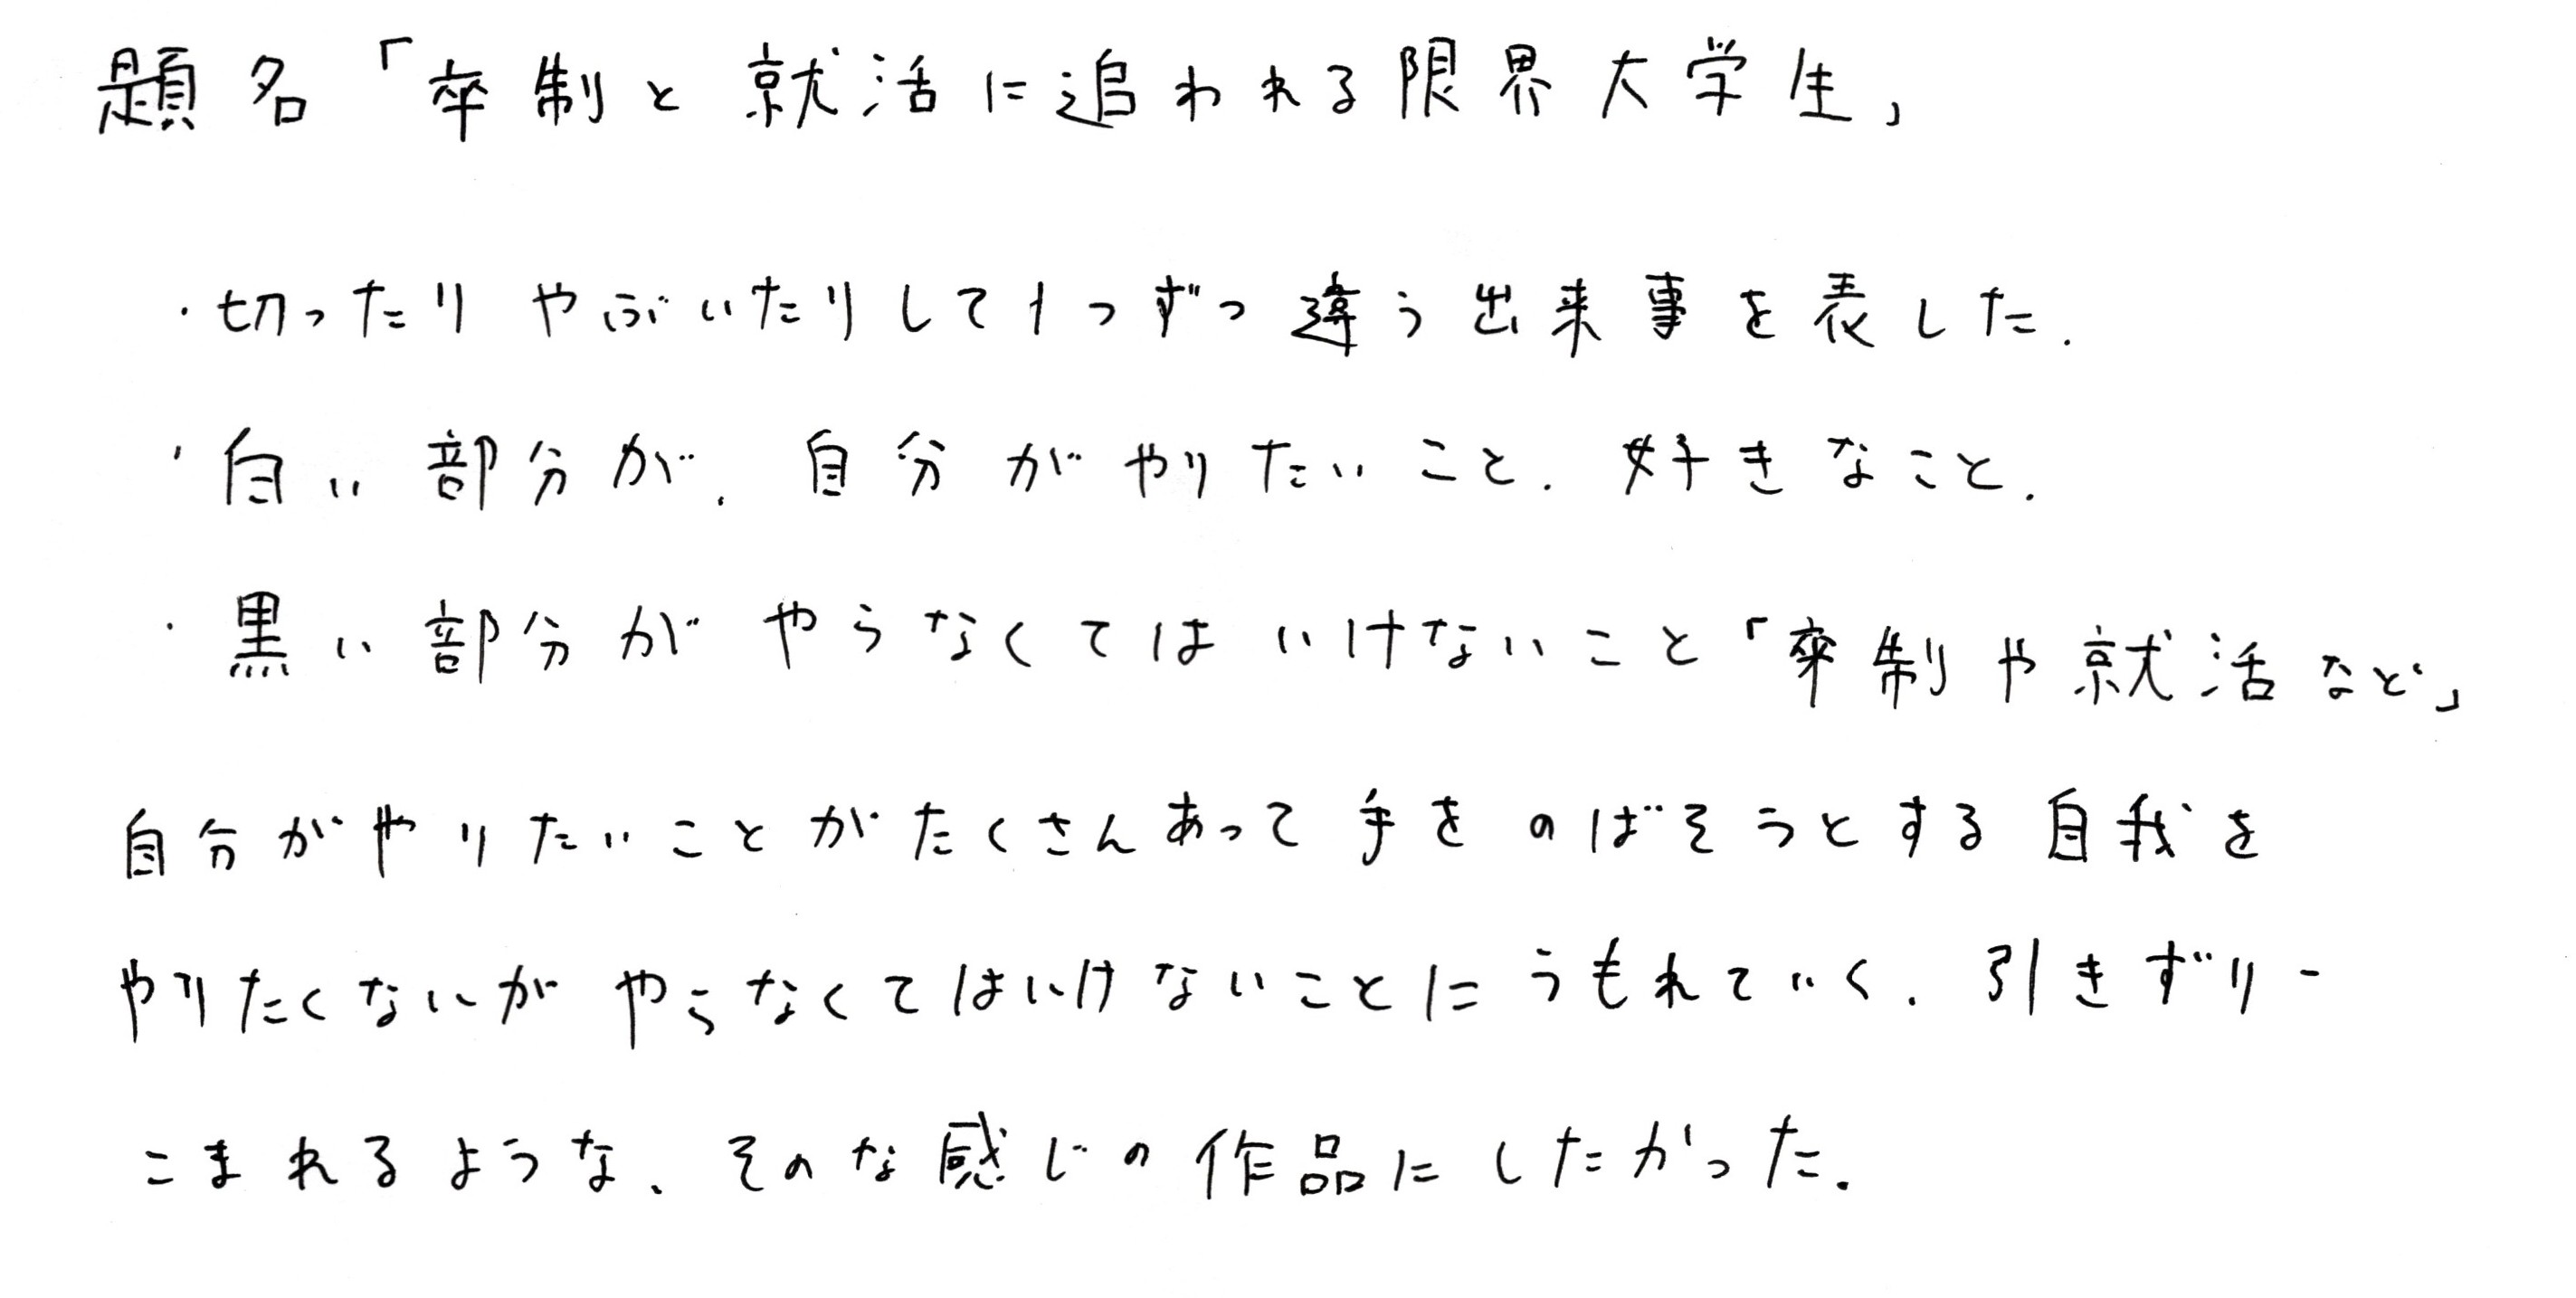 題名「卒制と就活に追われる限界大学生」
・切ったりやぶいたりして1つずつ違う出来事を表した.
・白い部分が、自分がやりたいこと.好きなこと.
・黒い部分がやらなくてはいけないこと「卒制や就活など」
自分がやりたいことがたくさんあって手をのばそうとする自我を
やりたくないがやらなくてはいけないことにうもれていく.引きずり-
こまれるような、そのな感じの作品にしたかった.